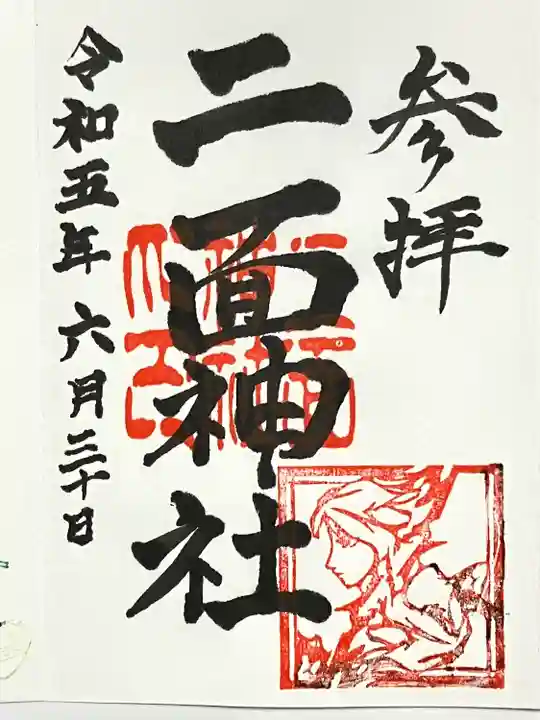 参拝
二面神社
令和五年 六月三十日